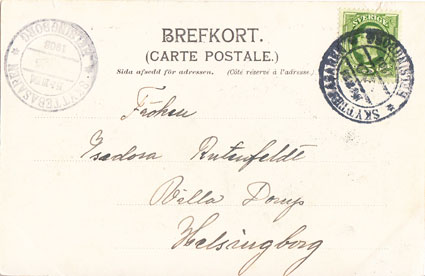 BREFKORT.
(CARTE POSTALE.)
Sida afsedd för adressen. (Côté réservé à l'adresse.)
SVERIGE
Fröken
Isadora Rutenfeldt
Villa Dorys
Helsingborg